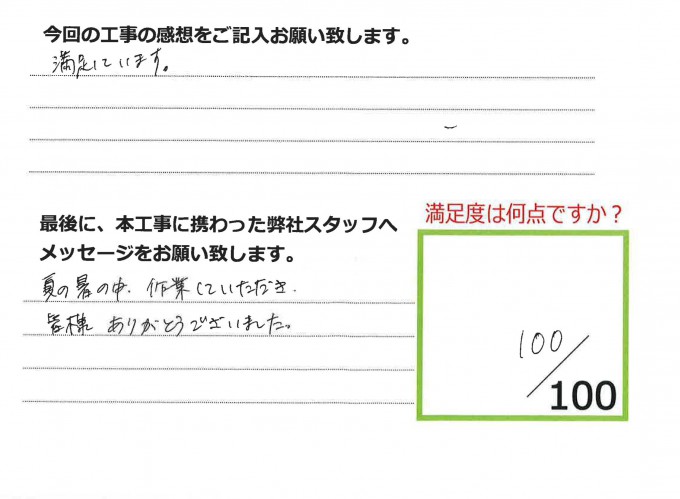 今回の工事の感想をご記入お願い致します。
満足しています。
最後に、本工事に携わった弊社スタッフへ
メッセージをお願い致します。
夏の暑の中、作業していただき、
皆様 ありがとうございました。
満足度は何点ですか？
100/100